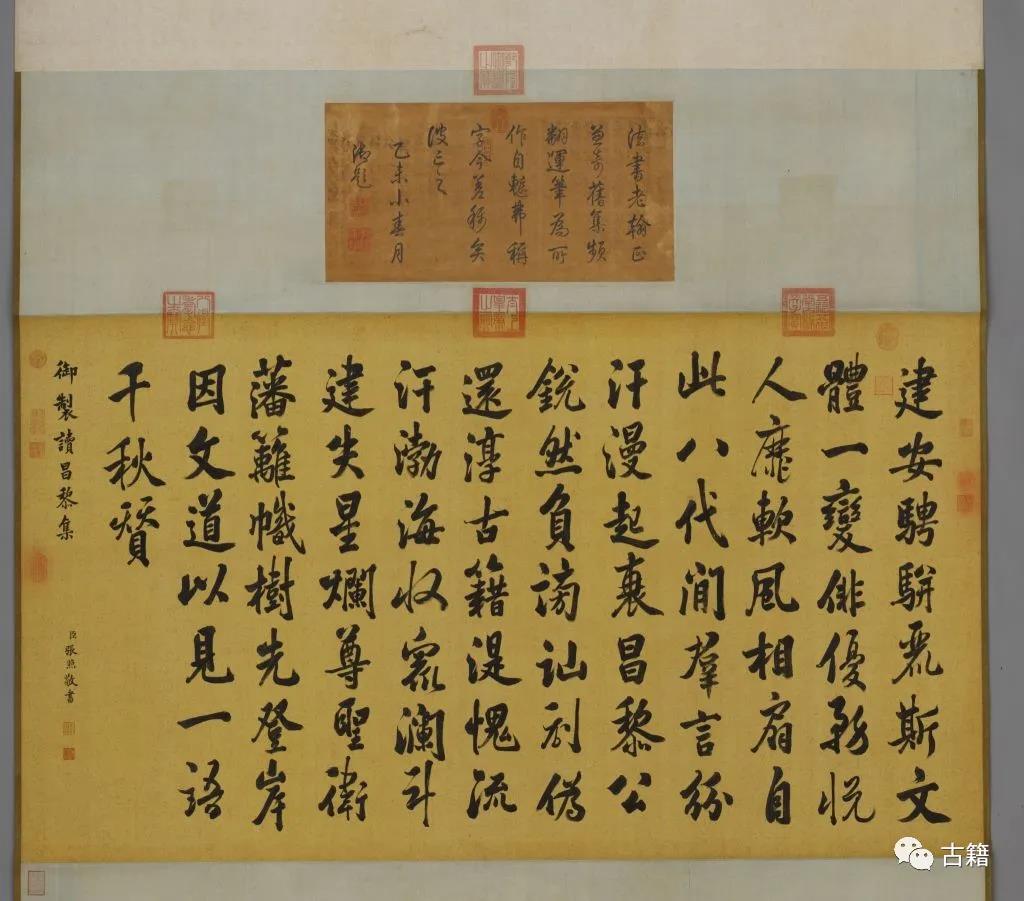 法書老翰
舊集頻
翻運筆為所
作自
字今
乙未小春月
御題
建安騁駢麗斯文
體一變俳優務悅
人靡軟風相扇自
此八代間羣言紛
汗漫起衰昌黎公
銳然負謗訕刮偽
還淳古籍湜愧流
汗渤海收眾瀾斗
建失星爛尊聖衛
藩籬幟樹先登岸
因文道以見一語
千秋贊
御製讀昌黎集
臣張照敬書
古籍